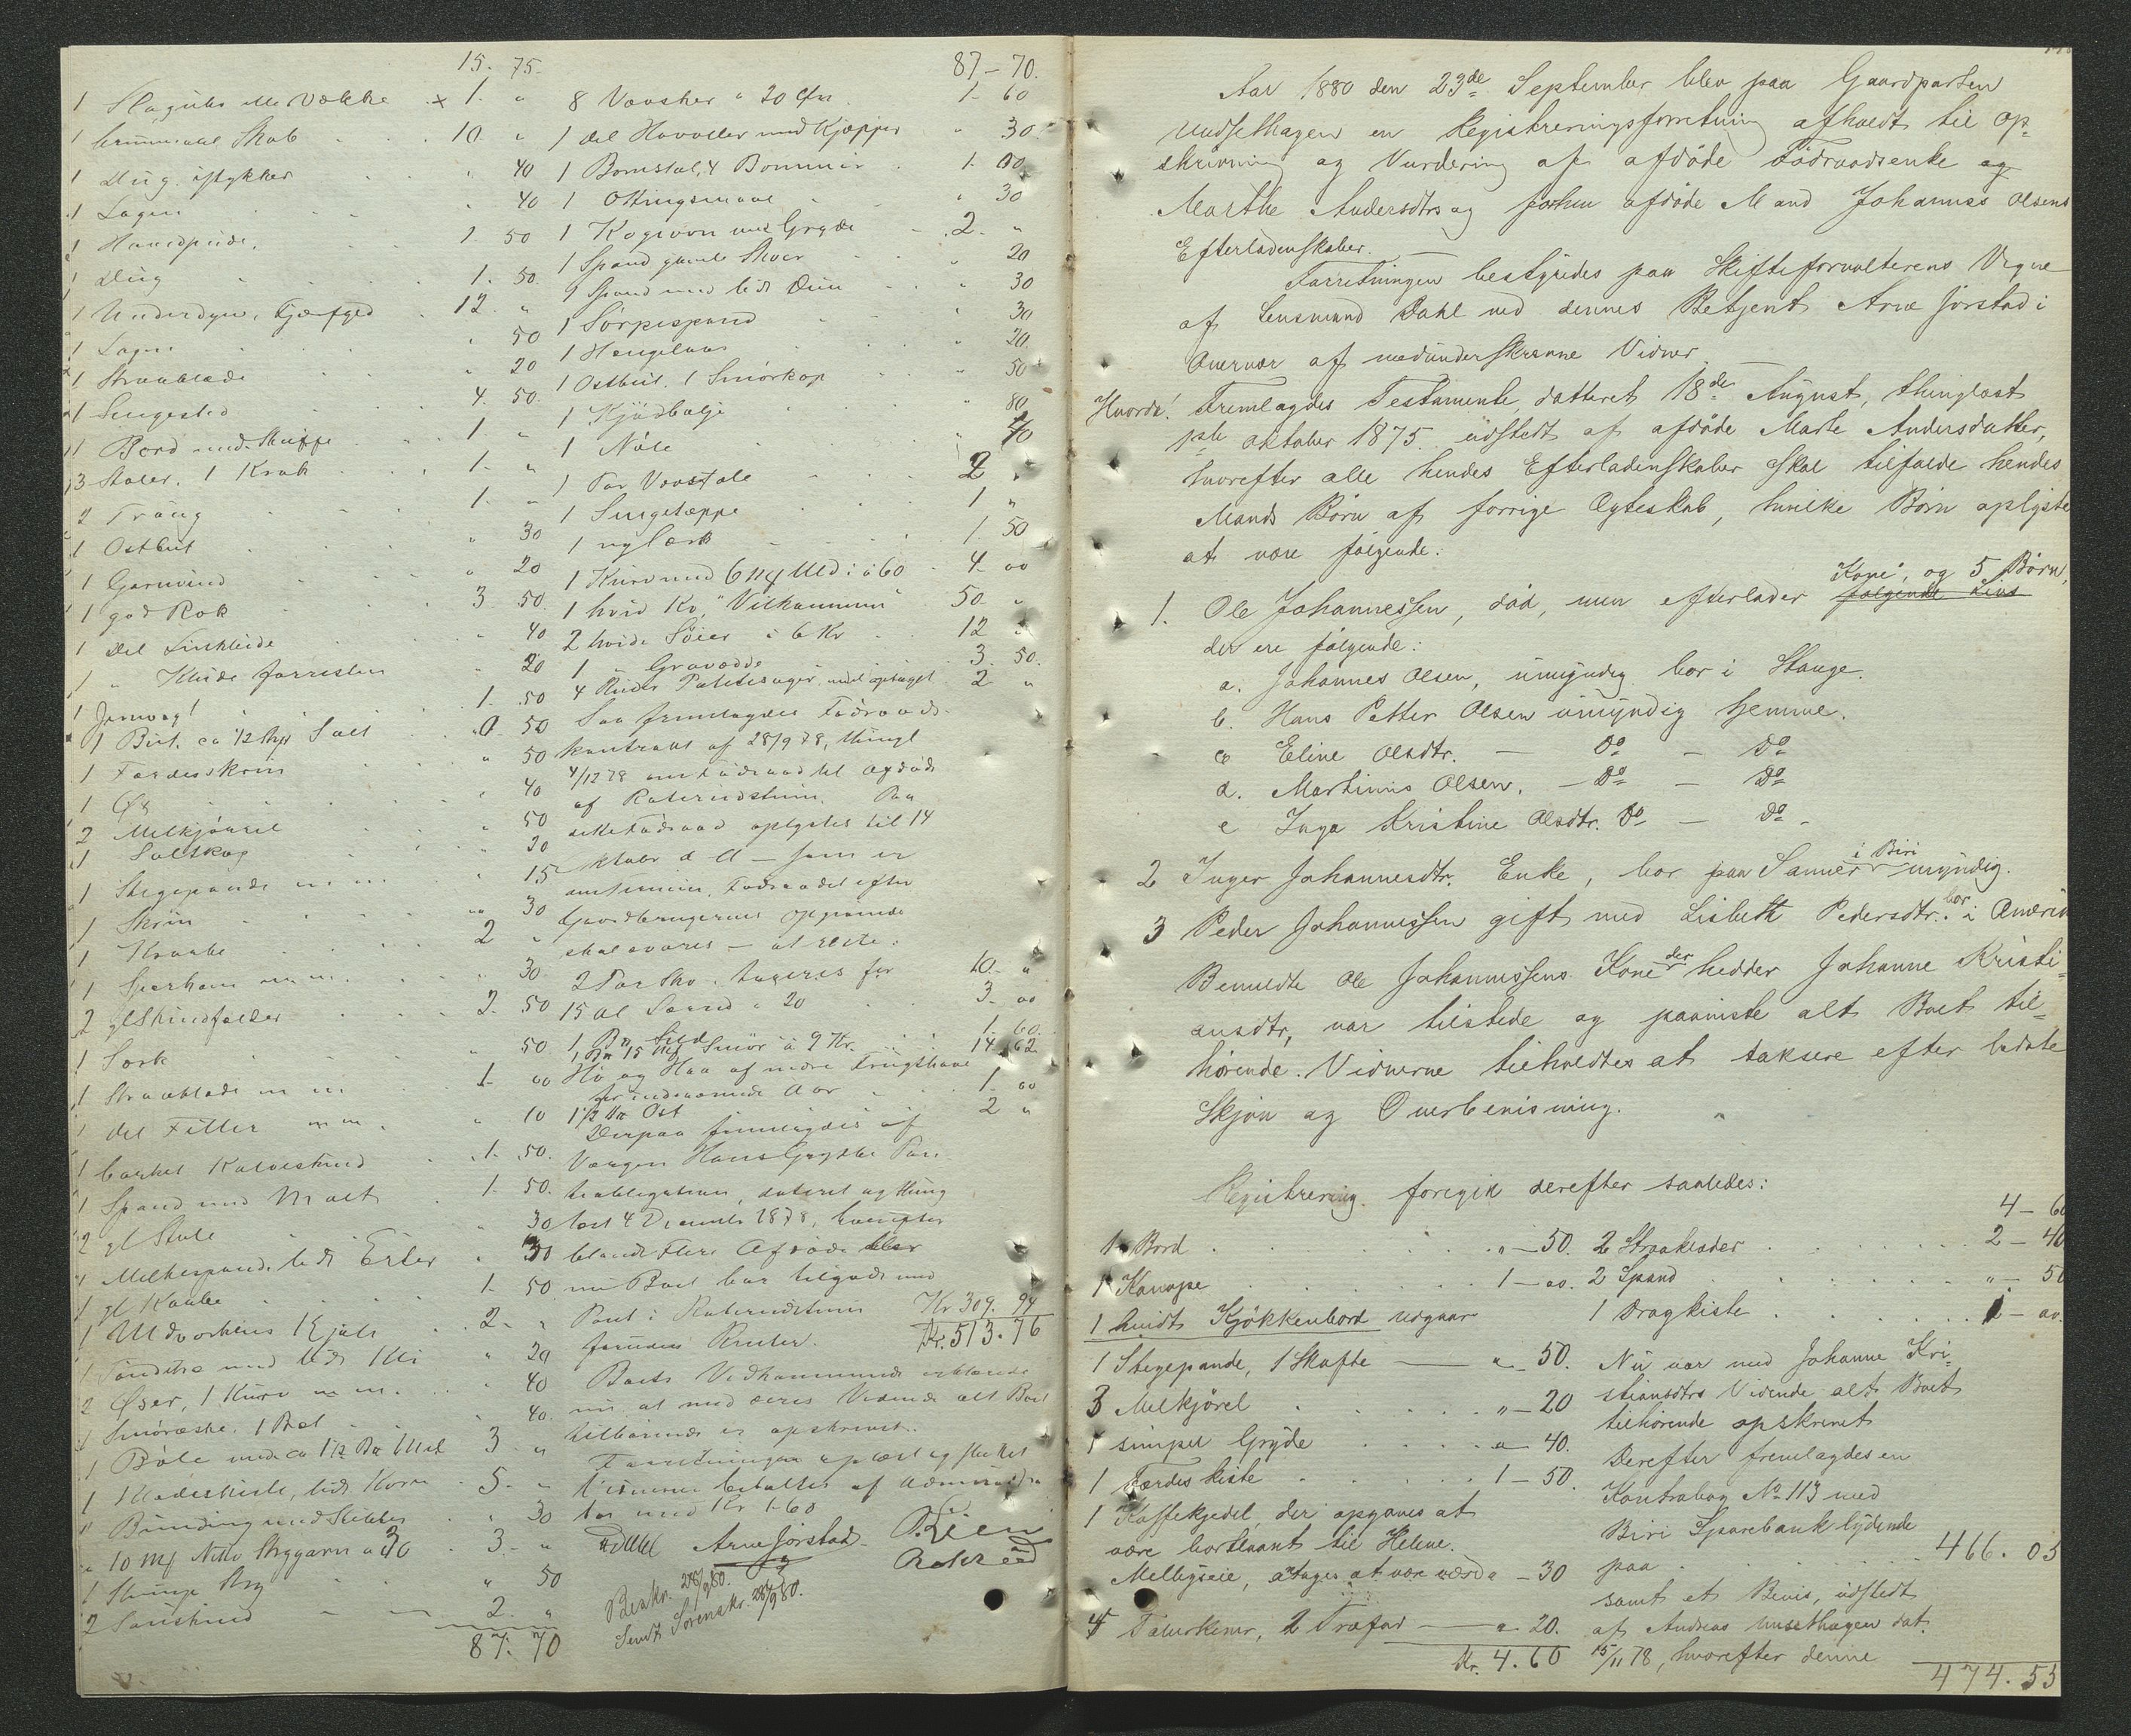 15. 75.
1 Slaguhr eller Vække x 1. "
1 brunmalet Skab 10. "
1 Dug, istykker " 40
1 Lagen " 40
1 Hovedpude 1. 50
1 Dug 1. 50.
1 Underdyne, Fjærfyld 12 "
1 Lagen " 50
1 Straablade " 20
1 Sengested 4. 50.
1 Bord med Skuffe 1 "
3 Stoler, 1 Krak 1. "
2 Traug 1. "
1 Ostbut " 30
1 Garnvind " 20
1 god Rok 3 50.
1 Del " 40
1 " Klude " 20
1 Jernvægt 1. 50
1 But, ca 1/2 Salt 0. 50
1 Færdesskrin " 50
1 Øx " 40
2 Melkjørrel " 50
1 Saltskap " 30
1 Stegepande m m " 15
1 Skrin " 30
1 Kraabe 2 "
1 Sparham m m " 30
2 gl Skindfælder 2. 50
1 Sæk " 50
1 Straablade m m 1- oo
1 del Filler m m " 10
1 barket Kalveskind 1- 50.
1 Spand med Malt 1- 50.
2 gl Stole " 30
4 Melkespande, lidt Erter " 30
1 gl Kaabe 1- 50
1 Kjole 2. "
1 Tønde med lidt " 20
2 Øser, 1 Kurv m m. " 40
1 Smøræske, 1 " 40.
1 Bøle med ca 1 1/2 Uld 3 "
1 Klædeskiste, lidt Korn 5. "
1 Bunding med " 30
" 10 Garn a 30 3. "
1 " 50
2 Saueskind 2. "
87. 70
87 – 70.
8 Vævskeer a 20 Øre 1- 60
1 Del Hovoller med Kjepper " 30.
1 Bomstol, 4 Bommer 1. 00
1 Ottingsmaal " 30
1 Kogeovn med Gryde 2. "
1 Spand gamle Skoer " 20
1 Spand med lidt Dun " 30
1 Sørpespand " 30
1 Hængelaas " 20.
1 Ostbut, 1 Smørkop " 50
1 Kjødbalje " 80
1 " 70
1 Par Vævstole 2 "
1 Sengetæppe 1 "
1 ny Særk 1 50
1 Kurv med 6 Uld i a 60 4- oo
1 hvid Ko, "Vilkommin" 50- "
2 hvide Søier a 6 Kr 12 "
1 " 3. 50.
4 Ruder Potetesager, uden optaget 2 "
Saa fremlagdes Föderaads-
kontrakt af 28/9 78, thingl
4/12 78 om Föderaad til afdøde
af Raterudstuen. Paa
dette Föderaad oplystes til 14
Oktober d A – som er
omtrennen, Föderaadet efter
Gaardbrugerens Opgivende
skal svares – at reste:
2 Par Sko, taxeres for 10. "
15 Al Særred a 20 3- oo
1 Bn Sild 1- 60.
1 Bn 15 M Smør a 9 Kr. 14. 62
Hø og Haa af nedre Trugshave
for indeværende Aar 1- oo
1 1/2 Ost 2 "
Derpaa fremlagdes af
Værgen Hans Pan-
teobligation, dateret og thing
læst 4 December 1878, hvorefter
blandt Flere Afdøde eller
nu Boet har tilgode med
Pant i Raterudstuen Kr. 309. 94
foruden Renter. Kr. 513. 76
Boets Vedkommende erklærede
nu at med deres Vidende alt Boet
tilhørende er opskrevet.
Forretningen oplæst og sluttet
Vidnerne betaltes af Administra
tor med Kr 1-60
Dahl Arne Jørstad P. Lien
Beskr. 28/9 80.
Sendt Sorenskr. 28/9 80.
Aar 1880 den 23de September blev paa Gaardparten
Undsethagen en Registreringsforretning afholdt til Op-
skrivning og Vurdering af afdøde Födraadsenke og
Marthe Andersdtrs og forhen afdøde Mand Johannes Olsens
Efterladenskaber. –
Forretningen bestyredes paa Skifteforvalterens Vegne
af Lensmand Dahl ved dennes Betjent Arne Jørstad i
Overvær af medunderskrevne Vidner. –
Hvorda! Fremlagdes Testamente, datteret 18de August, thinglæst
1ste Oktober 1875 udstedt af afdøde Marte Andersdatter,
hvorefter alle hendes Efterladenskaber skal tilfalde hendes
Mands Børn af forrige Ægteskab, hvilke Børn oplystes
at være følgende:
1. Ole Johannessen, död, men efterlader følgende Livs Kone, og 5 Børn,
der ere følgende:
a. Johannes Olsen, umyndig bor i Stange.
b. Hans Petter Olsen umyndig hjemme.
c Eline Olsdtr. – Do – Do
d. Martinus Olsen. – Do – Do
e Inga Kristine Olsdtr. Do – Do –
2 Inger Johannesdtr. Enke, bor paa Sanner i Biri myndig.
3 Peder Johannessen gift med Lisbeth Pedersdtr. bor i Amerika
Bemeldte Ole Johannessens Kone der hedder Johanne Kristi-
ansdtr, var tilstede og paaviste alt Boet til-
hørende. Vidnerne tilholdtes at taksere efter bedste
Skjøn og Overbevisning.
Registrering foregik derefter saaledes:
1 Bord " – 50.
1 Kanape 1 – oo.
1 hvidt Kjøkkenbord udgaar
1 Stegepande, 1 Skafte " – 50.
3 Melkjørel " – 20
1 simpel Gryde " – 40.
1 Færdes kiste 1 – 50.
1 Kaffekjedel, der opgaves at
være bortlaant til Helene
Mellbyseie, antages at være værd " – 30
4 Talerkener, 2 Træfad " – 20.
Kr. 4. 60
4 – 60
2 Straakister 2 – 40
2 Spand " – 50
1 Dragkiste 1 – oo.
Nu var med Johanne Kri-
stiansdtrs Vidende alt Boet
tilhørende opskrevet
Derefter fremlagdes en
Kontrabog No 113 med
Biri Sparebank lydende
paa 466. 05
samt et Bevis, udstedt
af Andreas Unsethagen dat.
15/11 78, hvorefter denne
474. 55